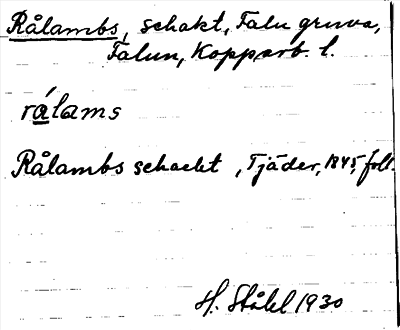 Rålambs, schakt, Falu gruva,
Falun, Kopparb. l.
rálams
Rålambs schacht, Tjäder, 1845, foll.
H. Ståhl 1930